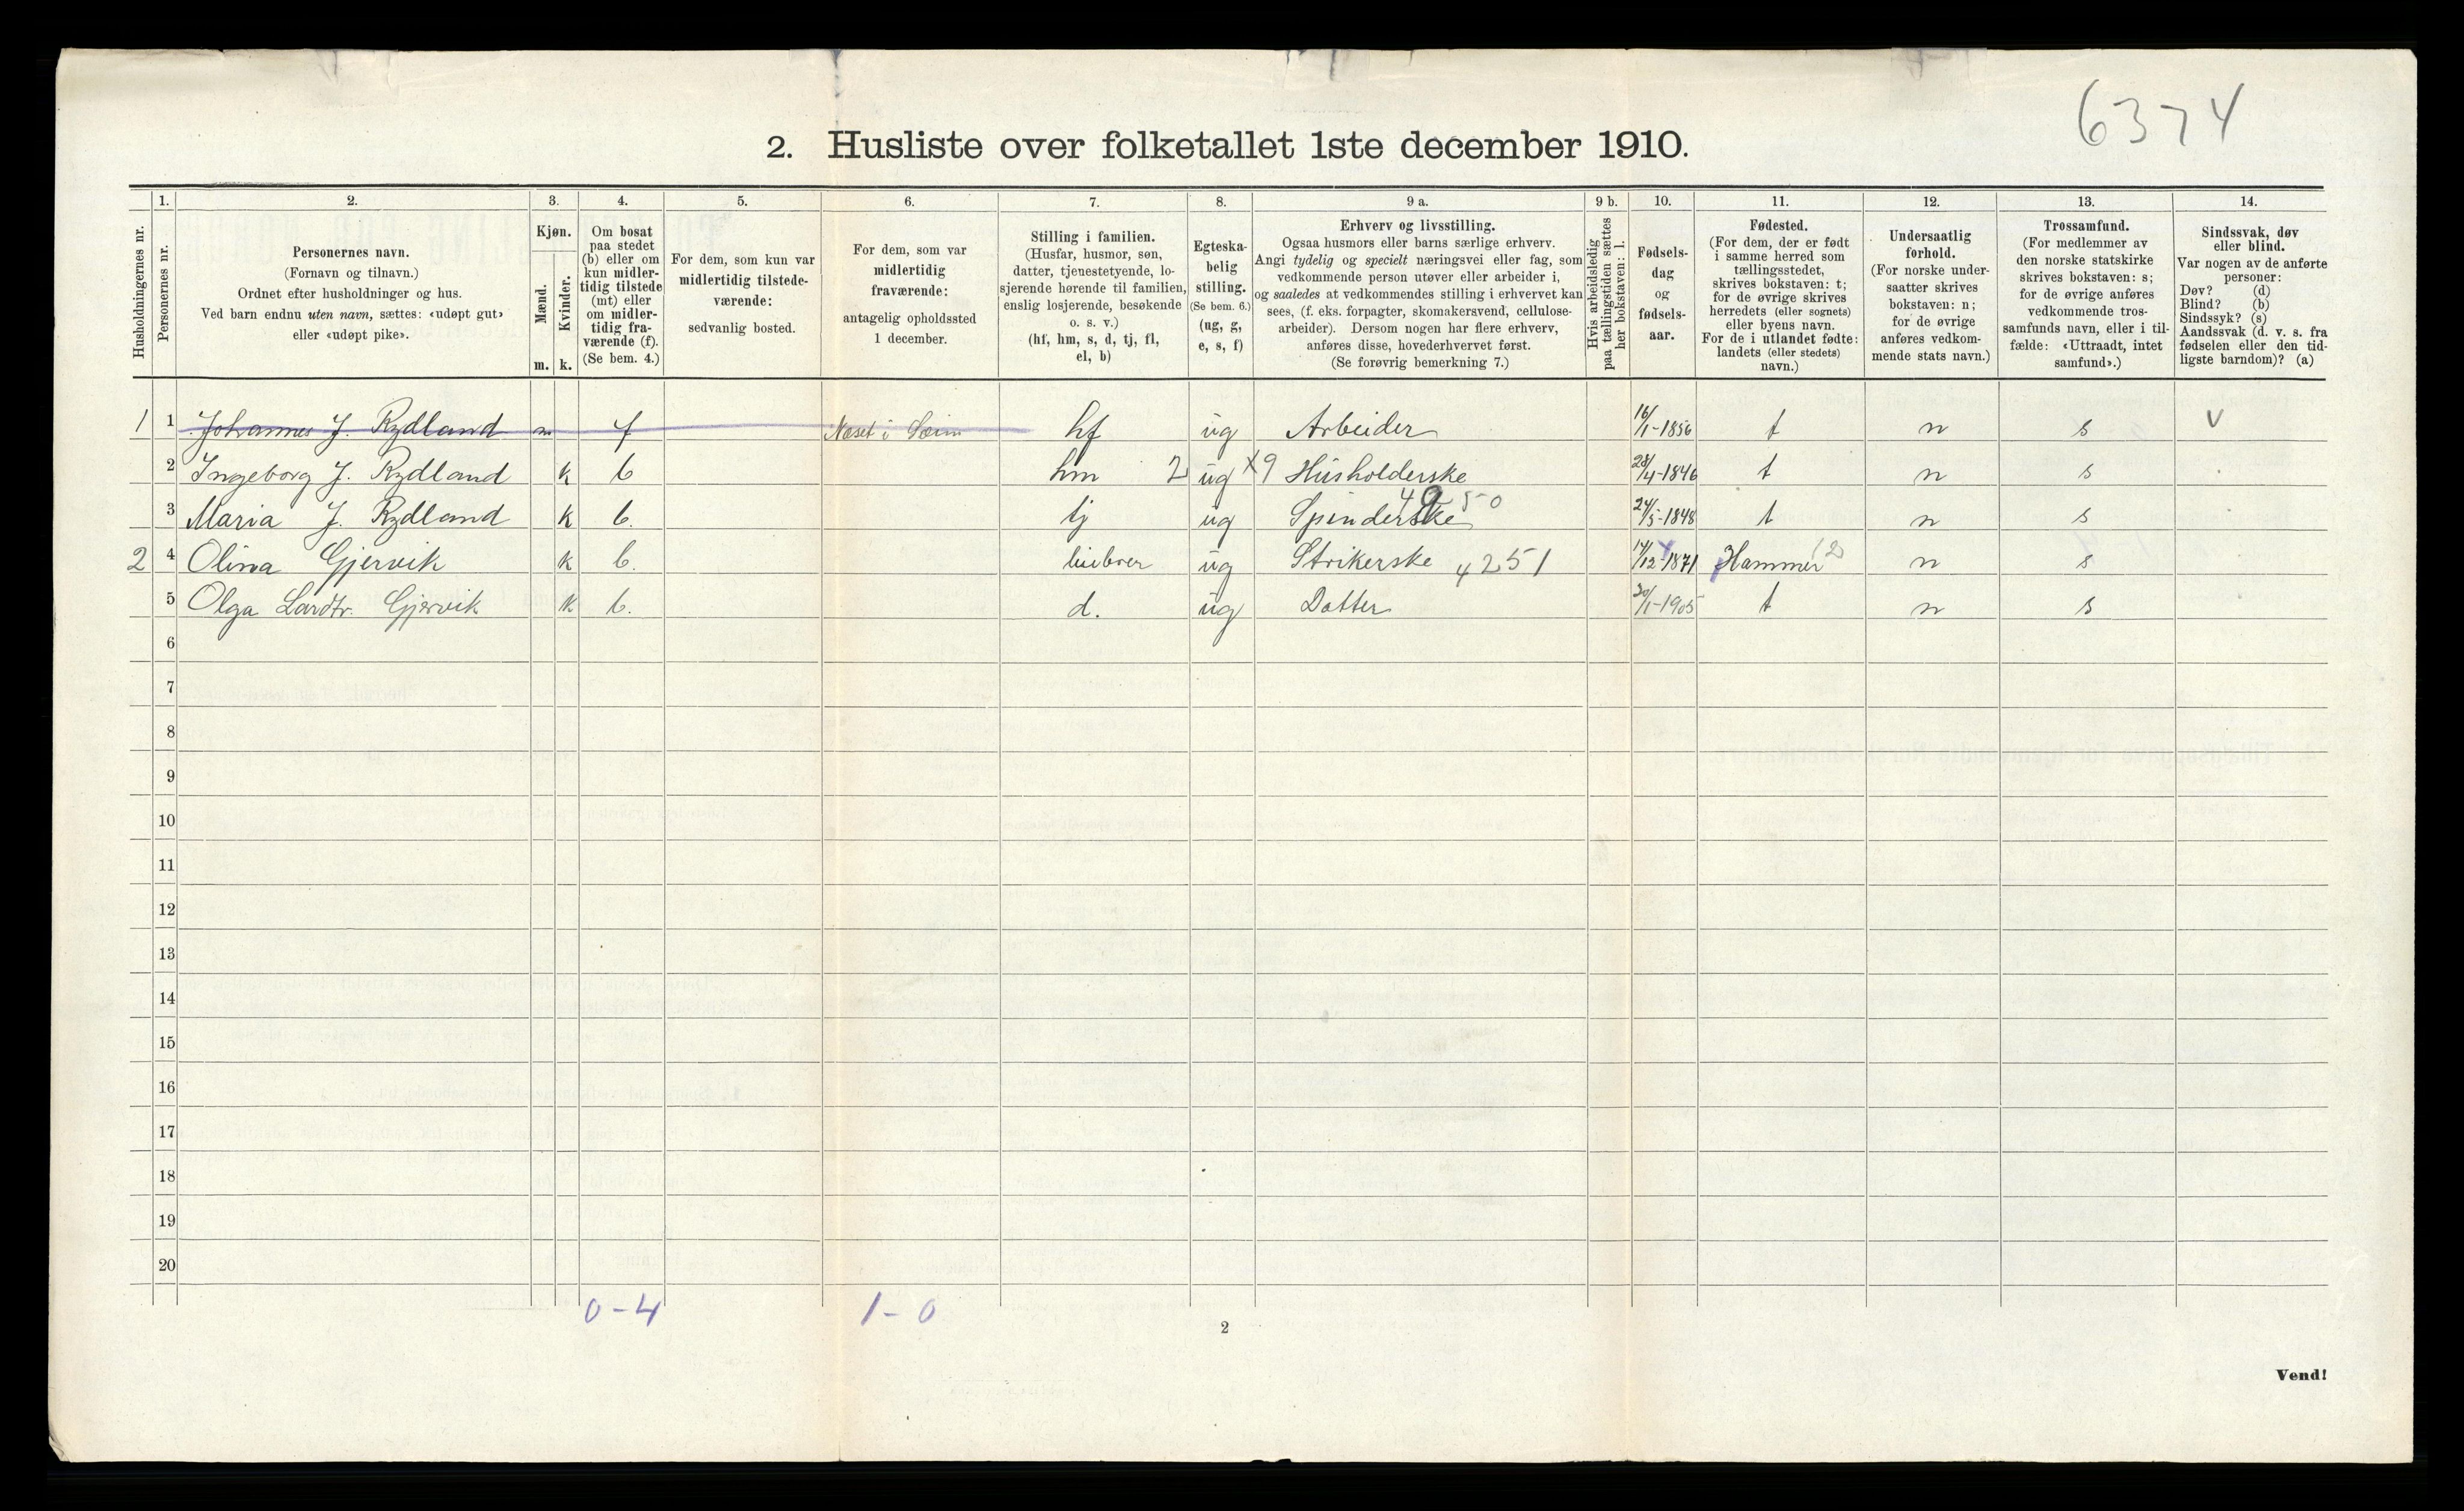 6374
2. Husliste over folketallet 1ste december 1910.
Husholdningernes nr.
1.
Personernes nr.
2.
Personernes navn.
(Fornavn og tilnavn.)
Ordnet efter husholdninger og hus.
Ved barn endnu uten navn, sættes: «udøpt gut»
eller «udøpt pike».
3.
Kjøn.
Mænd.
Kvinder.
m. k.
4.
Om bosat
paa stedet
(b) eller om
kun midler-
tidig tilstede
(mt) eller
om midler-
tidig fra-
værende (f).
(Se bem. 4.)
5.
For dem, som kun var
midlertidig tilstede-
værende:
sedvanlig bosted.
6.
For dem, som var
midlertidig
fraværende:
antagelig opholdssted
1 december.
7.
Stilling i familien.
(Husfar, husmor, søn,
datter, tjenestetyende, lo-
sjerende hørende til familien,
enslig losjerende, besøkende
o. s. v.)
(hf, hm, s, d, tj, fl,
el, b)
8.
Egteska-
belig
stilling.
(Se bem. 6.)
(ug, g,
e, s, f)
9 a.
Erhverv og livsstilling.
Ogsaa husmors eller barns særlige erhverv.
Angi tydelig og specielt næringsvei eller fag, som
vedkommende person utøver eller arbeider i,
og saaledes at vedkommendes stilling i erhvervet kan
sees, (f. eks. forpagter, skomakersvend, cellulose-
arbeider). Dersom nogen har flere erhverv,
anføres disse, hovederhvervet først.
(Se forøvrig bemerkning 7.)
9 b.
Hvis arbeidsledig
paa tællingstiden sættes
her bokstaven: l.
10.
Fødsels-
dag
og
fødsels-
aar.
11.
Fødested.
(For dem, der er født
i samme herred som
tællingsstedet,
skrives bokstaven: t;
for de øvrige skrives
herredets (eller sognets)
eller byens navn.
For de i utlandet fødte:
landets (eller stedets)
navn.)
12.
Undersaatlig
forhold.
(For norske under-
saatter skrives
bokstaven: n;
for de øvrige
anføres vedkom-
mende stats navn.)
13.
Trossamfund.
(For medlemmer av
den norske statskirke
skrives bokstaven: s;
for de øvrige anføres
vedkommende tros-
samfunds navn, eller i til-
fælde: «Uttraadt, intet
samfund».)
14.
Sindssvak, døv
eller blind.
Var nogen av de anførte
personer:
Døv? (d)
Blind? (b)
Sindssyk? (s)
Aandssvak (d. v. s. fra
fødselen eller den tid-
ligste barndom)? (a)
1 1 Johannes J. Rydland m f Næset i Sæim hf ug Arbeider 16/1-1856 t n s v
2 Ingeborg J. Rydland k b hm 2 ug x9 Husholderske 28/4-1846 t n s
3 Maria J. Rydland k b. tj ug Spinderske 4250 24/5-1848 t n s
2 4 Olina Gjervik k b. ug Strikerske 4251 14/12-1871 Hammer 12 n s
5 Olga Gjervik k b. d. ug Datter 30/1-1905 t n s
6
7
8
9
10
11
12
13
14
15
16
17
18
19
20
0-4 1-0
2
Vend!